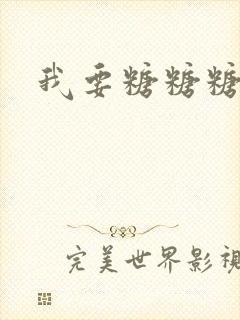 我要糖糖糖
完美世界影视